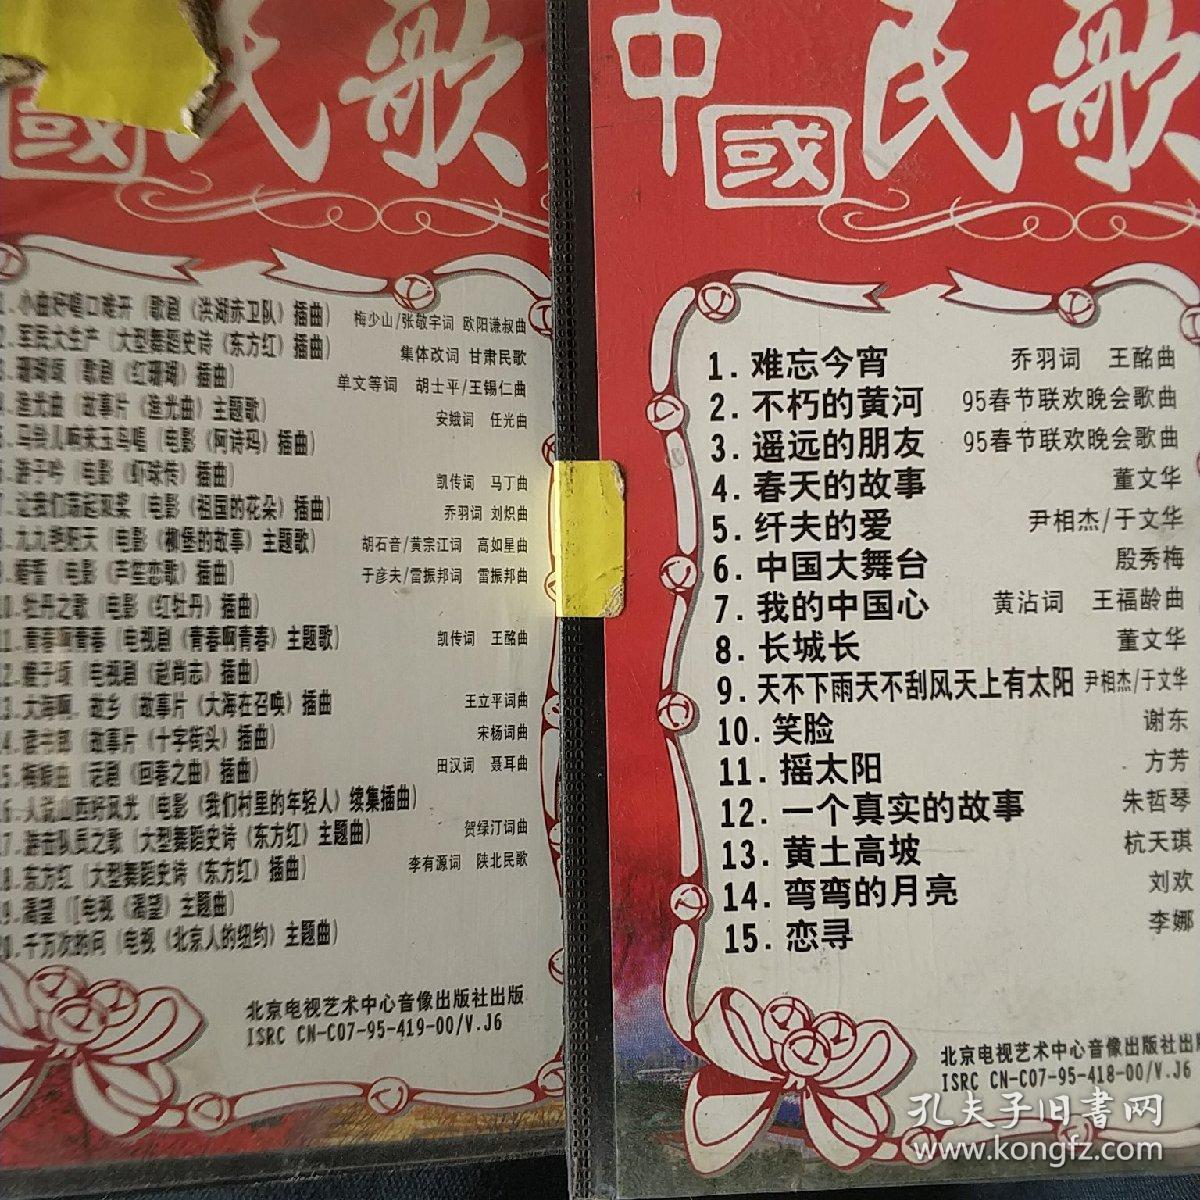 國民歌
1.小曲好唱口难开（歌剧《洪湖赤卫队》插曲） 梅少山/张敬字词 欧阳谦叔曲
2.军民大生产（大型舞蹈史诗《东方红》插曲） 集体改词 甘肃民歌
3.珊瑚颂（歌剧《红珊瑚》插曲） 单文等词 胡士平/王锡仁曲
4.渔光曲（故事片《渔光曲》主题歌） 安娥词 任光曲
5.马铃儿响来玉鸟唱（电影《阿诗玛》插曲）
6.游子吟（电影《虾球传》插曲） 凯传词 马丁曲
7.让我们荡起双桨（电影《祖国的花朵》插曲） 乔羽词 刘炽曲
8.九九艳阳天（电影《柳堡的故事》主题歌） 胡石音/黄宗江词 高如星曲
9.婚誓（电影《芦笙恋歌》插曲） 于彦夫/雷振邦词 雷振邦曲
10.牡丹之歌（电影《红牡丹》插曲）
11.青春啊青春（电视剧《青春啊青春》主题歌） 凯传词 王酩曲
12.嫂子颂（电视剧《赵尚志》插曲）
13.大海啊，故乡（故事片《大海在召唤》插曲 王立平词曲
14.读书郎（故事片《十字街头》插曲） 宋杨词曲
15.梅娘曲（话剧《回春之曲》插曲） 田汉词 聂耳曲
16.人说山西好风光（电影《我们村里的年轻人》续集插曲）
17.游击队员之歌（大型舞蹈史诗《东方红》主题曲） 贺绿汀词曲
18.东方红（大型舞蹈史诗《东方红》插曲） 李有源词 陕北民歌
19.渴望（[电视《渴望》主题曲）
20.千万次的问（电视《北京人的纽约》主题曲）
北京电视艺术中心音像出版社出版
ISRC CN-C07-95-419-00/V.J6
中國民歌
1.难忘今宵 乔羽词 王酩曲
2.不朽的黄河 95春节联欢晚会歌曲
3.遥远的朋友 95春节联欢晚会歌曲
4.春天的故事 董文华
5.纤夫的爱 尹相杰/于文华
6.中国大舞台 殷秀梅
7.我的中国心 黄沾词 王福龄曲
8.长城长 董文华
9.天不下雨天不刮风天上有太阳 尹相杰/于文华
10.笑脸 谢东
11.摇太阳 方芳
12.一个真实的故事 朱哲琴
13.黄土高坡 杭天琪
14.弯弯的月亮 刘欢
15.恋寻 李娜
北京电视艺术中心音像出版社出版
ISRC CN-C07-95-418-00/V.J6
孔夫子旧書网
www.kongfz.com